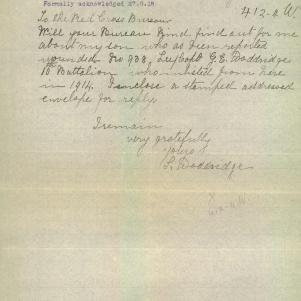 Formally acknowledged 27.6.18
412-a W
To the Red Cross Bureau
Will your Bureau kind find out for me
about my son who as been reported
wounded No 938, L/Corpl G.E. Doddridge
10 Battalion who inlisted from here
in 1914. I inclose a stamped addressed
envelope for reply
I remain
very gratefully
Yours
S. Doddridge